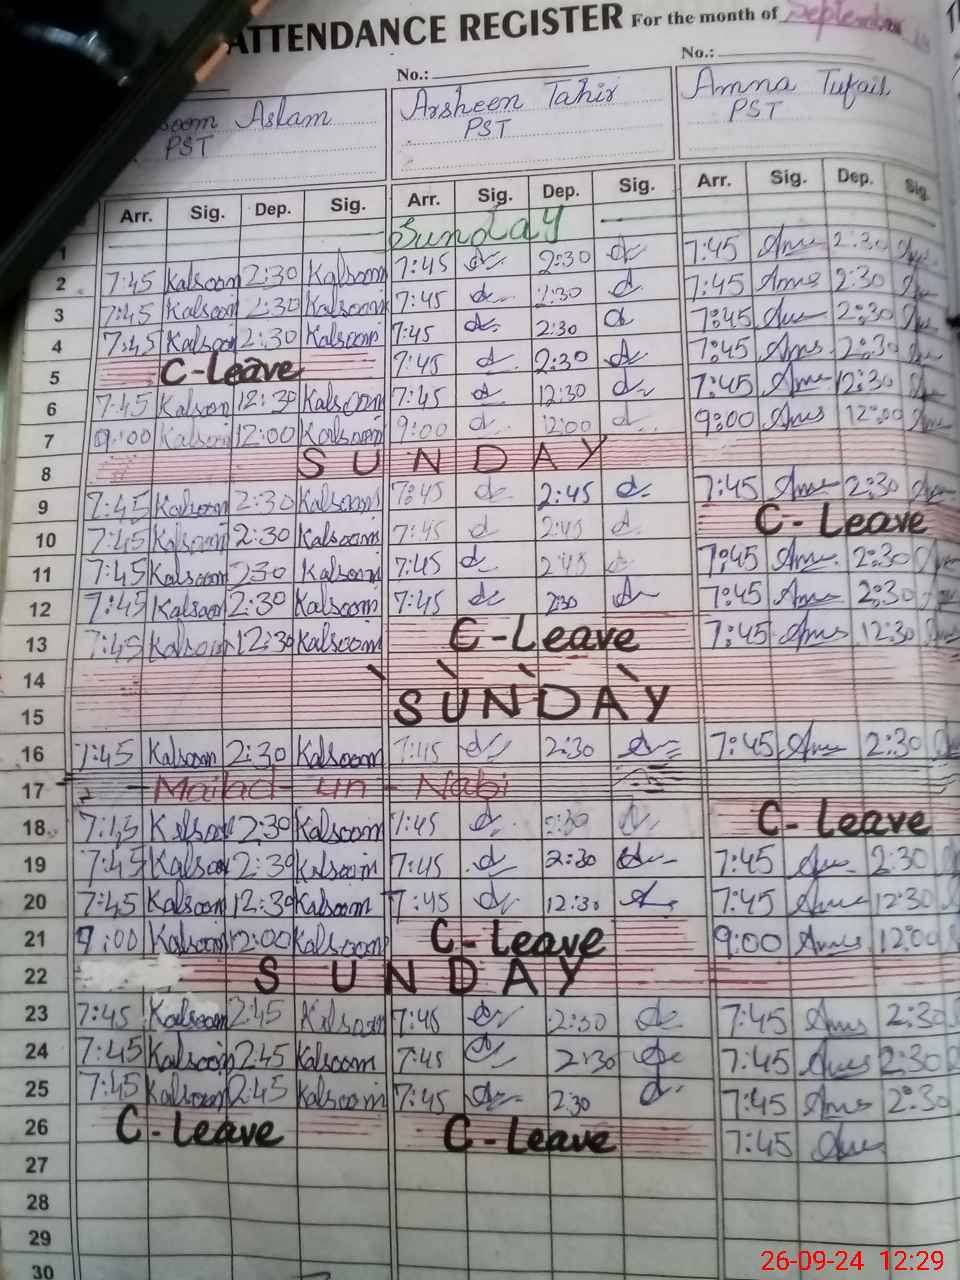 ATTENDANCE REGISTER For the month of September
No.: No.:
Aslam Arsheen Tahir Amna Tufail
PST PST PST
Arr. Sig. Dep. Sig. Arr. Sig. Dep. Sig. Arr. Sig. Dep. Sig.
1 Sunday
2 7:45 Kalsoom 2:30 Kalsoom 7:45 2:30 7:45 2:30
3 7:45 Kalsoom 2:30 Kalsoom 7:45 2:30 7:45 2:30
4 7:45 Kalsoom 2:30 Kalsoom 7:45 2:30 7:45 2:30
5 C-Leave 7:45 2:30 7:45 2:30
6 7:45 Kalsoom 12:30 Kalsoom 7:45 12:30 7:45 12:30
7 9:00 Kalsoom 12:00 Kalsoom 9:00 12:00 9:00 12:00
8 SUNDAY
9 7:45 Kalsoom 2:30 Kalsoom 7:45 2:45 7:45 2:30
10 7:45 Kalsoom 2:30 Kalsoom 7:45 2:45 C-Leave
11 7:45 Kalsoom 230 Kalsoom 7:45 2:45 7:45 2:30
12 7:45 Kalsoom 2:30 Kalsoom 7:45 2:30 7:45 2:30
13 7:45 Kalsoom 12:30 Kalsoom C-Leave 7:45 12:30
14
15 SUNDAY
16 7:45 Kalsoom 2:30 Kalsoom 7:45 2:30 7:45 2:30
17 Mailad-un-Nabi
18 7:45 Kalsoom 2:30 Kalsoom 7:45 2:30 C-Leave
19 7:45 Kalsoom 2:30 Kalsoom 7:45 2:30 7:45 2:30
20 7:45 Kalsoom 12:30 Kalsoom 7:45 12:30 7:45 12:30
21 9:00 Kalsoom 12:00 Kalsoom C-Leave 9:00 12:00
22 SUNDAY
23 7:45 Kalsoom 2:45 Kalsoom 7:45 2:30 7:45 2:30
24 7:45 Kalsoom 2:45 Kalsoom 7:45 2:30 7:45 2:30
25 7:45 Kalsoom 2:45 Kalsoom 7:45 2:30 7:45 2:30
26 C-Leave C-Leave 7:45
27
28
29
30
26-09-24 12:29